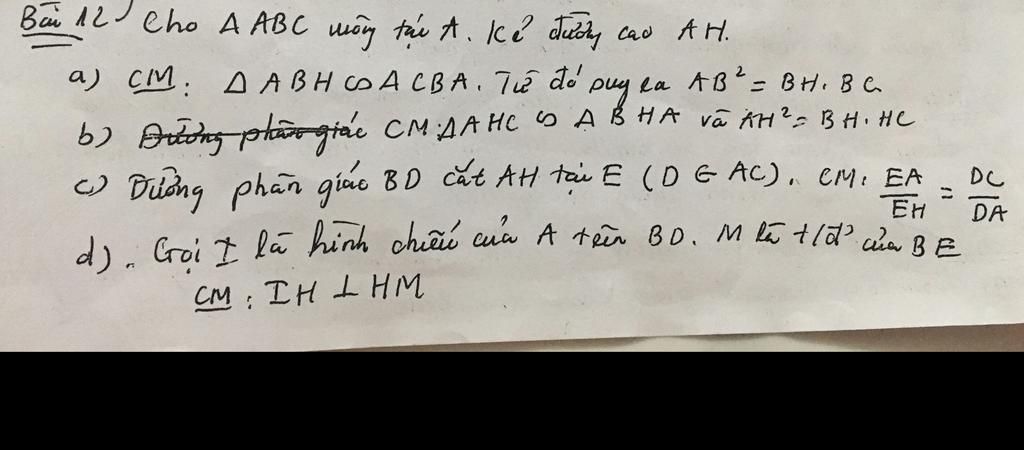 Bài 12) Cho Δ ABC vuông tại A. Kẻ đường cao AH.
a) CM: Δ ABH ∽ Δ CBA. Từ đó suy ra AB² = BH. BC
b) Đường phân giác CM: ΔAHC ∽ Δ BHA và AH² = BH. HC
c) Đường phân giác BD cắt AH tại E (D ∈ AC). CM: EA/EH = DC/DA
d). Gọi I là hình chiếu của A trên BD. M là t/đ' của BE
CM: IH ⊥ HM